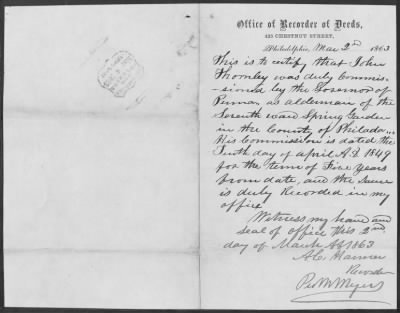 Office of Recorder of Deeds,
435 CHESTNUT STREET,
Philadelphia, Mar 2nd 1863
This is to certify that John
Thomley was duly Commis-
-sioned by the Governor of
Penna as alderman of the
Seventh ward Spring Garden
in the County of Philada
His Commission is dated the
Tenth day of april A.D. 1849
for the term of Five Years
from date, and the same
is duly Recorded in my
office
Witness my hand and
seal of office this 2nd
day of March Ad 1863
A.C. Harmer
Recorder
Per M Myers